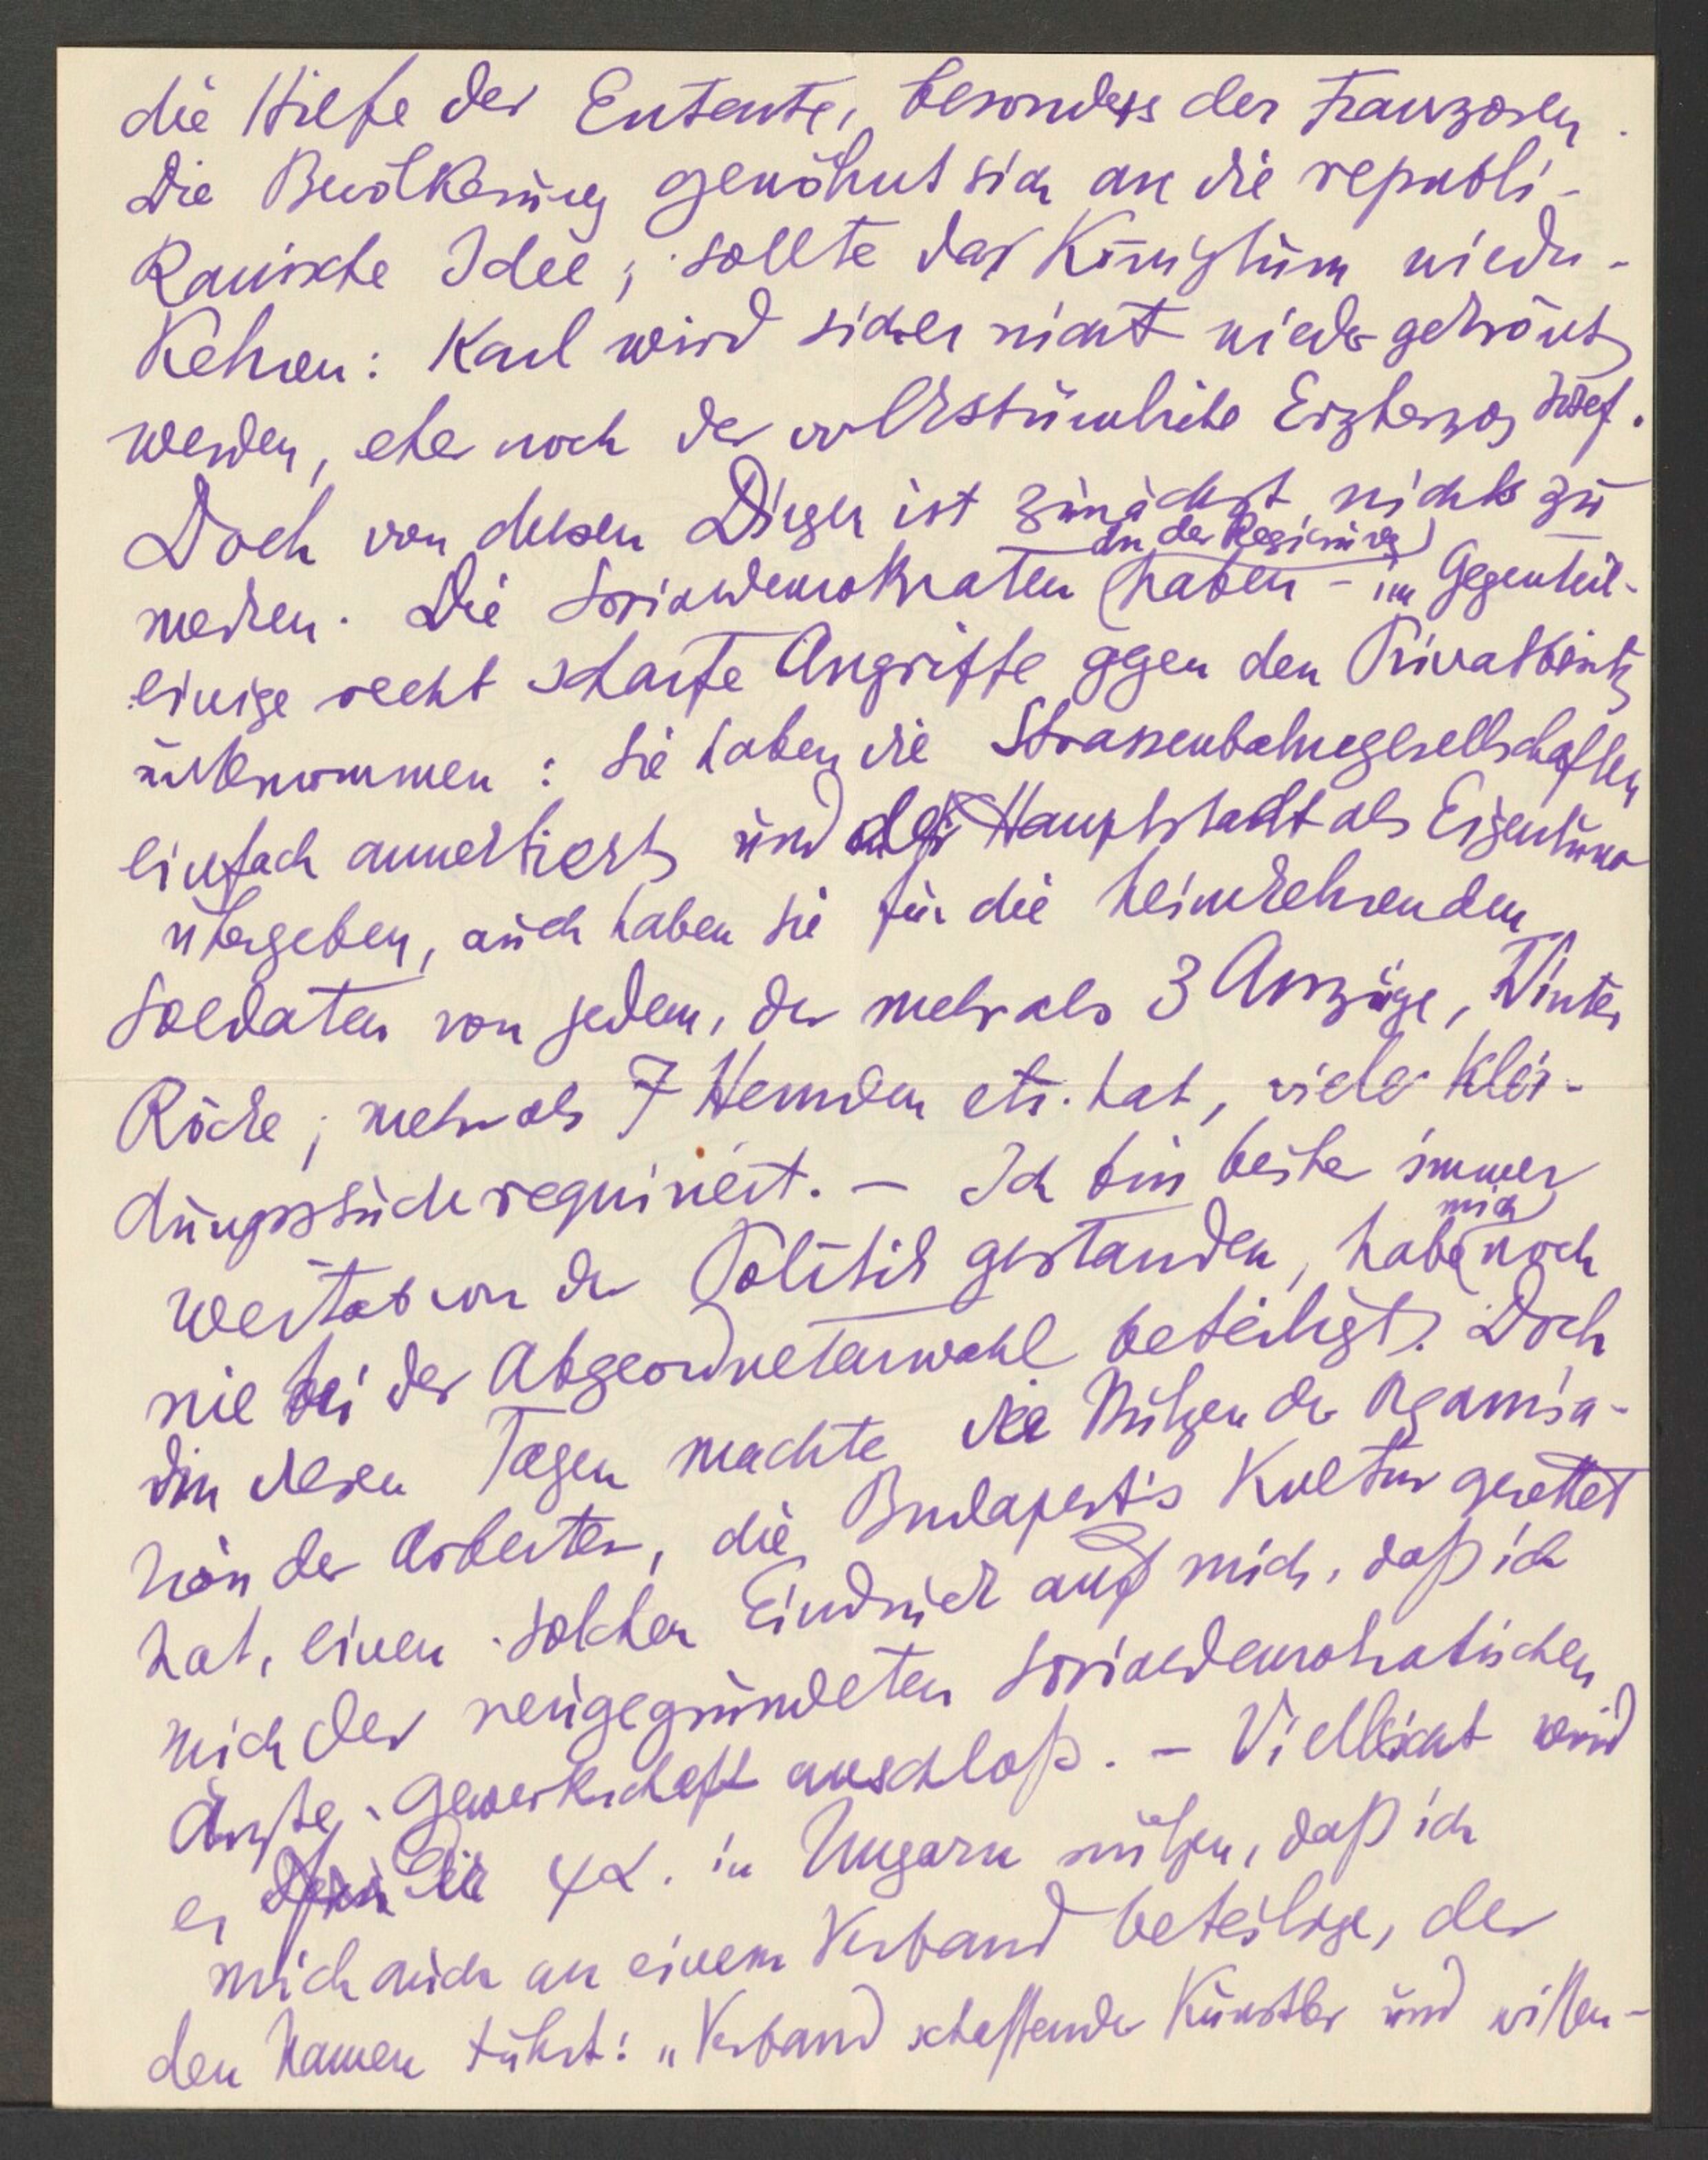 die Hilfe der Entente, besonders der Franzosen.
Die Bevölkerung gewöhnt sich an die republi-
kanische Idee; sollte das Königtum wieder-
kehren: Karl wird sicher nicht wieder gekrönt
werden, eher noch der volkstümliche Erzherzog Josef.
Doch von diesen Dingen ist zunächst nichts zu
in der Regierung
merken. Die Sozialdemokraten haben – im Gegenteil –
einige recht scharfe Angriffe gegen den Privatbesitz
unternommen: Sie haben die Strassenbahngesellschaften
einfach annektiert und der Hauptstadt als Eigentum
übergeben, auch haben sie für die heimkehrenden
Soldaten von jedem, der mehr als 3 Anzüge, Winter
Röcke, mehr als 7 Hemden etc. hat, viele Klei-
dungsstücke requiriert. – Ich bin bisher immer
mich
weitab von der Politik gestanden, habe noch
nie bei der Abgeordnetenwahl beteiligt. Doch
in diesen Tagen machte die Organisa-
tion der Arbeiter, die Budapest's Kultur gerettet
hat, einen solchen Eindruck auf mich, daß ich
mich der neugegründeten sozialdemokratischen
Ärzte-Gewerkschaft anschloß. – Vielleicht wird
es der ΨΑ. in Ungarn nützen, daß ich
mich auch an einem Verband beteilige, der
den Namen führt: „Verband schaffender Künstler und wissen-